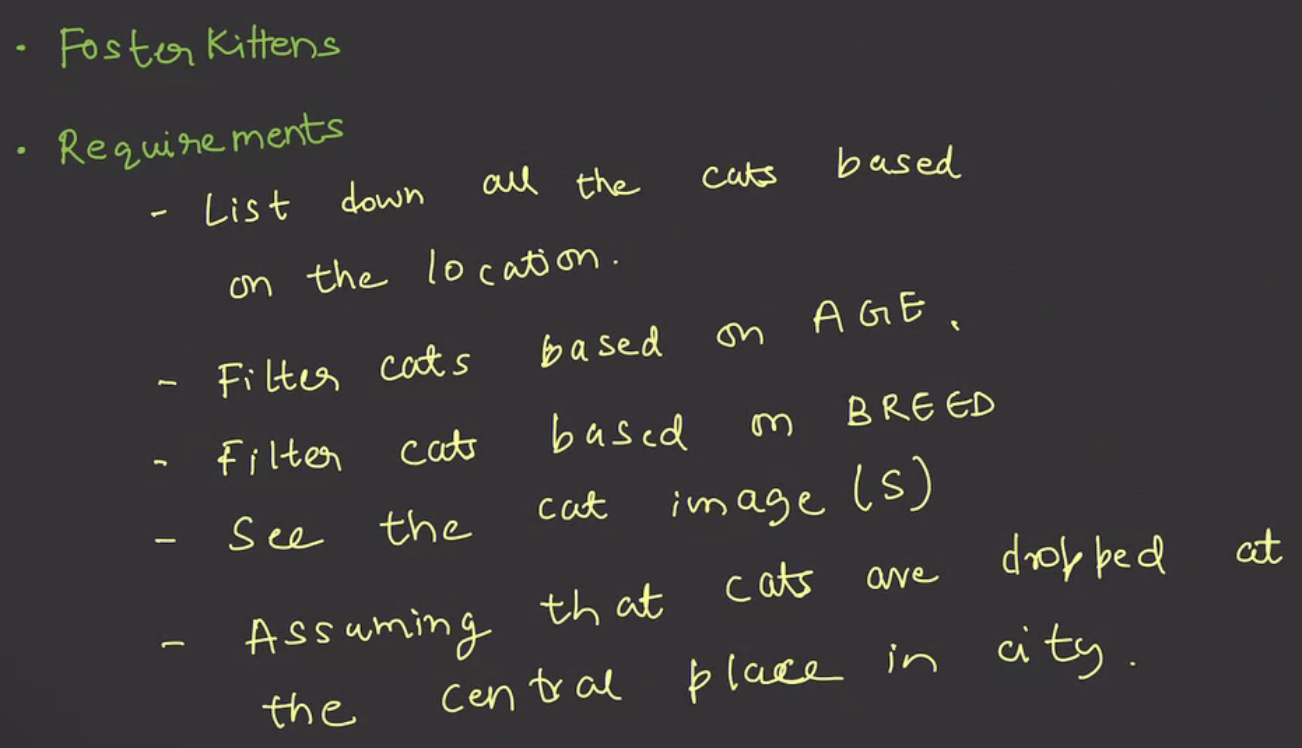 • Foster Kittens
• Requirements
- List down all the cats based
on the location.
- Filter cats based on AGE.
- Filter cats based on BREED
- See the cat image(s)
- Assuming that cats are dropped at
the central place in city.